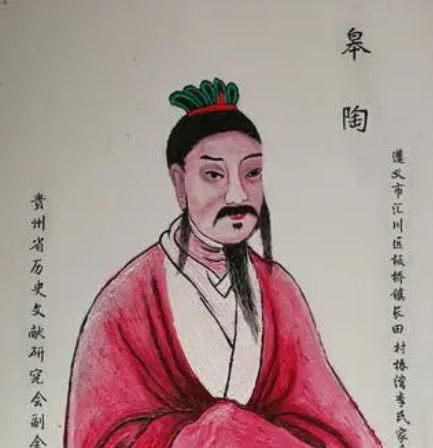 皋陶
遵义市汇川区板桥镇长田村椿湾李氏家
贵州省历史文献研究会副会